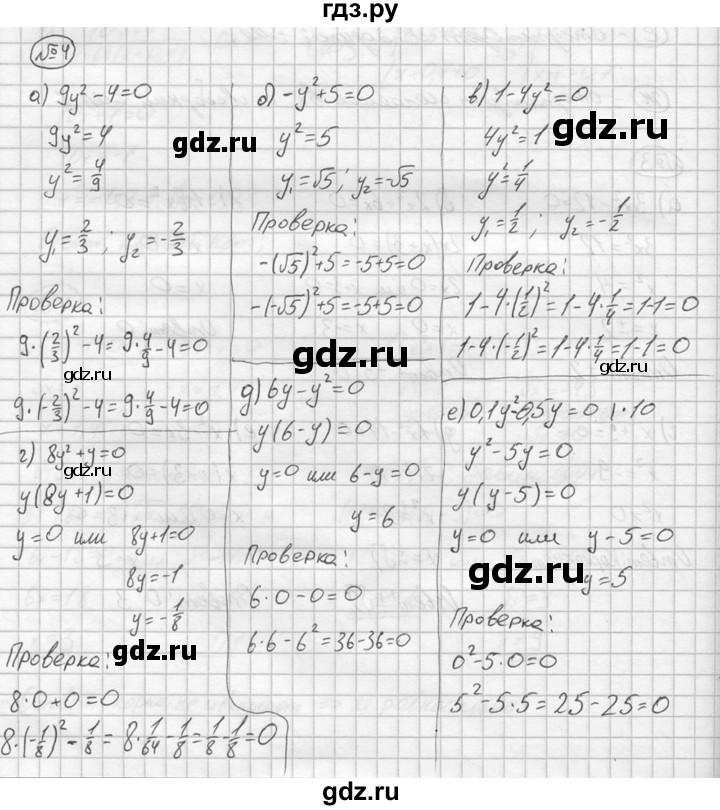 гдз.ру
№4
а) 9y² - 4 = 0
9y² = 4
y² = 4/9
y₁ = 2/3 ; y₂ = -2/3
Проверка:
9·(2/3)² - 4 = 9·4/9 - 4 = 0
9·(-2/3)² - 4 = 9·4/9 - 4 = 0
б) -y² + 5 = 0
y² = 5
y₁ = √5 ; y₂ = -√5
Проверка:
-(√5)² + 5 = -5 + 5 = 0
-(-√5)² + 5 = -5 + 5 = 0
в) 1 - 4y² = 0
4y² = 1
y² = 1/4
y₁ = 1/2 ; y₂ = -1/2
Проверка:
1 - 4·(1/2)² = 1 - 4·1/4 = 1 - 1 = 0
1 - 4·(-1/2)² = 1 - 4·1/4 = 1 - 1 = 0
г) 8y² + y = 0
y(8y + 1) = 0
y = 0 или 8y + 1 = 0
8y = -1
y = -1/8
Проверка:
8·0 + 0 = 0
8·(-1/8)² - 1/8 = 8·1/64 - 1/8 = 1/8 - 1/8 = 0
д) 6y - y² = 0
y(6 - y) = 0
y = 0 или 6 - y = 0
y = 6
Проверка:
6·0 - 0 = 0
6·6 - 6² = 36 - 36 = 0
е) 0,1y² - 0,5y = 0 | ·10
y² - 5y = 0
y(y - 5) = 0
y = 0 или y - 5 = 0
y = 5
Проверка:
0² - 5·0 = 0
5² - 5·5 = 25 - 25 = 0
gdz.ru
gdz.ru
gdz.ru
gdz.ru
gdz.ru
gdz.ru
gdz.ru
gdz.ru
gdz.ru
gdz.ru
gdz.ru
gdz.ru
gdz.ru